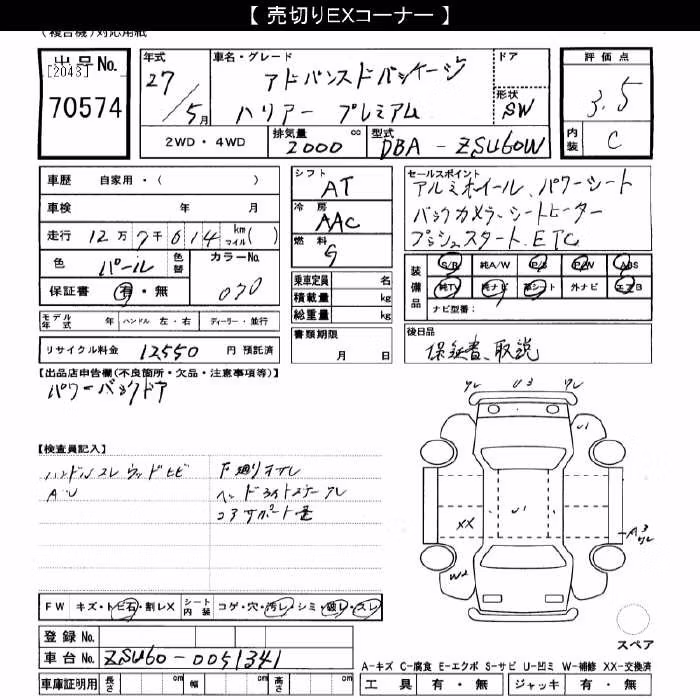 【 売切りEXコーナー 】
(複合機)対応用紙
出品No.
[2043]
70574
年式
27/5月
車名・グレード
アドバンスドパッケージ
ハリアー プレミアム
ドア
形状
SW
評価点
3.5
内装
C
2WD・4WD
排気量
2000 cc
型式
DBA-ZSU60W
車歴 自家用・( )
車検 年 月
走行 12万7千614 km マイル( )
色 パール 色替 カラーNo.
070
保証書 有・無
モデル年式 年 ハンドル 左・右 ディーラー・並行
リサイクル料金 12550 円 預託済
シフト
AT
冷房
AAC
燃料
G
乗車定員 名
積載量 kg
総重量 kg
書類期限
月 日
セールスポイント
アルミホイール、パワーシート
バックカメラ、シートヒーター
プッシュスタート、ETC
装備品
S/R 純A/W P/S P/W ABS
純TV 純ナビ 革シート 外ナビ エアB
ナビ型番:
後日品
保証書、取説
【出品店申告欄(不良箇所・欠品・注意事項等)】
パワーバックドア
【検査員記入】
ハンドルスレ ウッドヒビ
下廻りサビ
コアサポート歪
ワレ U3 ワレ
U1
XX
U1
A3
ワレ
W2
スペア
FW キズ・トビ石・割レX シート内装 コゲ・穴・汚レ・シミ・破レ・スレ
登録No.
車台No. ZSU60-0051341
車庫証明用 長さ cm 幅 cm 高さ cm
A-キズ C-腐食 E-エクボ S-サビ U-凹ミ W-補修 XX-交換済
工具 有・無 ジャッキ 有・無